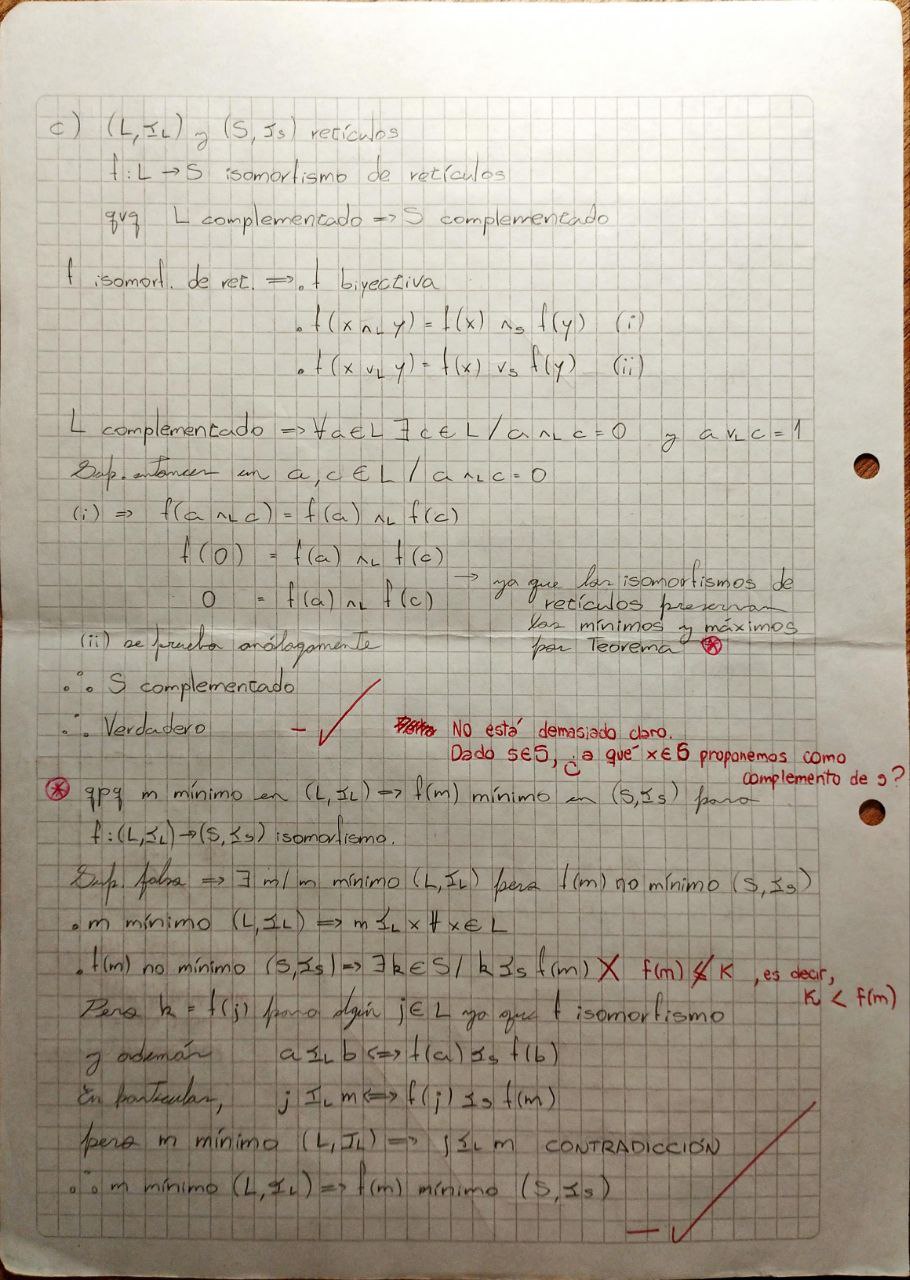 c) (L,≤L) y (S,≤s) retículos
f: L → S isomorfismo de retículos
qvq L complementado => S complementado
f isomorf. de ret. => . f biyectiva
. f(x ∧L y) = f(x) ∧s f(y) (i)
. f(x ∨L y) = f(x) ∨s f(y) (ii)
L complementado => ∀a∈L ∃c∈L / a ∧L c = 0 y a ∨L c = 1
Sup. entonces un a, c ∈ L / a ∧L c = 0
(i) => f(a ∧L c) = f(a) ∧L f(c)
f(0) = f(a) ∧L f(c)
0 = f(a) ∧L f(c) → ya que los isomorfismos de
retículos preservan
los mínimos y máximos
por Teorema *
(ii) se prueba análogamente
∴ S complementado
∴ Verdadero
No está demasiado claro.
Dado s∈S, ¿a qué x∈S proponemos como
complemento de s?
* qpq m mínimo en (L,≤L) => f(m) mínimo en (S,≤s) para
f: (L,≤L) → (S,≤s) isomorfismo.
Sup. falso => ∃ m / m mínimo (L,≤L) pero f(m) no mínimo (S,≤s)
. m mínimo (L,≤L) => m ≤L x ∀ x ∈ L
. f(m) no mínimo (S,≤s) => ∃k∈S / k ≤s f(m) X f(m) ≰ K , es decir,
K < f(m)
Pero k = f(j) para algún j∈L ya que f isomorfismo
y además a ≤L b <=> f(a) ≤s f(b)
En particular, j ≤L m <=> f(j) ≤s f(m)
pero m mínimo (L,≤L) => j ≰L m CONTRADICCIÓN
∴ m mínimo (L,≤L) => f(m) mínimo (S,≤s)